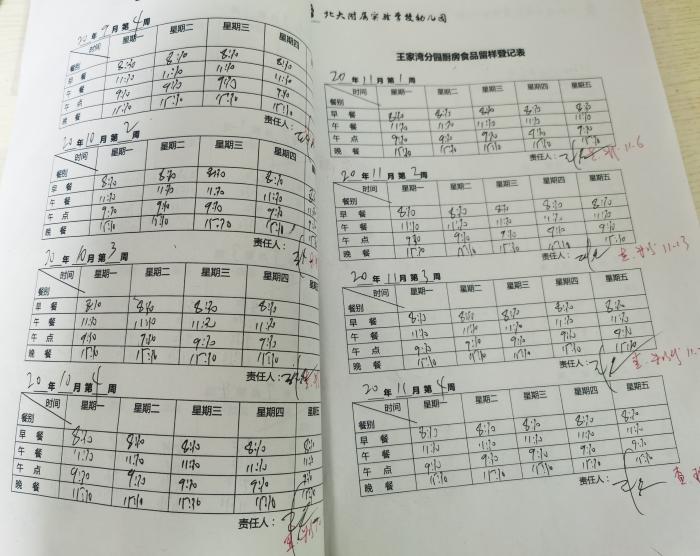 20 年 9 月 第 4 周
时间 星期一 星期二 星期三 星期四
餐别
早 餐 8:30 8:10 8:10 8:10
午 餐 11:10 11:10 11:10 11:10
午 点 9:10 9:10 9:10 9:10
晚 餐 15:10 15:10 15:10 15:10
责任人：
20 年 10 月 第 2 周
时间 星期一 星期二 星期三 星期四
餐别
早 餐 8:10 8:10 8:10 8:10
午 餐 11:10 11:10 11:10 11:10
午 点 9:10 9:10 9:10 9:10
晚 餐 15:10 15:10 15:10 15:10
责任人：
20 年 10 月 第 3 周
时间 星期一 星期二 星期三 星期四
餐别
早 餐 8:10 8:10 8:10 8:10
午 餐 11:10 11:10 11:10
午 点 9:10 9:10 9:10 9:10
晚 餐 15:10 15:10 15:10 15:10
责任人：
20 年 10 月 第 4 周
时间 星期一 星期二 星期三 星期四
餐别
早 餐 8:10 8:10 8:10 8:10
午 餐 11:10 11:10 11:10 11:10
午 点 9:10 9:10 9:10 9:10
晚 餐 15:10 15:10 15:10 15:10
责任人：
北大附属实验学校幼儿园
王家湾分园厨房食品留样登记表
20 年 11 月 第 1 周
时间 星期一 星期二 星期三 星期四 星期五
餐别
早 餐 8:10 8:10 8:10 8:10 8:10
午 餐 11:10 11:10 11:10 11:10 11:10
午 点 9:10 9:10 9:10 9:10 9:10
晚 餐 15:10 15:10 15:10 15:10 15:10
责任人： 11.6
20 年 11 月 第 2 周
时间 星期一 星期二 星期三 星期四 星期五
餐别
早 餐 8:10 8:10 8:10 8:10 8:10
午 餐 11:10 11:10 11:10 11:10 11:10
午 点 9:10 9:10 9:10 9:10 9:10
晚 餐 15:10 15:10 15:10 15:10 15:10
责任人： 查 11.13
20 年 11 月 第 3 周
时间 星期一 星期二 星期三 星期四 星期五
餐别
早 餐 8:10 8:10 8:10 8:10 8:10
午 餐 11:10 11:10 11:10 11:10 11:10
午 点 9:10 9:10 9:10 9:10 9:10
晚 餐 15:10 15:10 15:10 15:10 15:10
责任人： 查
20 年 11 月 第 4 周
时间 星期一 星期二 星期三 星期四 星期五
餐别
早 餐 8:10 8:10 8:10 8:10 8:10
午 餐 11:10 11:10 11:10 11:10 11:10
午 点 9:10 9:10 9:10 9:10 9:10
晚 餐 15:10 15:10 15:10 15:10 15:10
责任人： 查